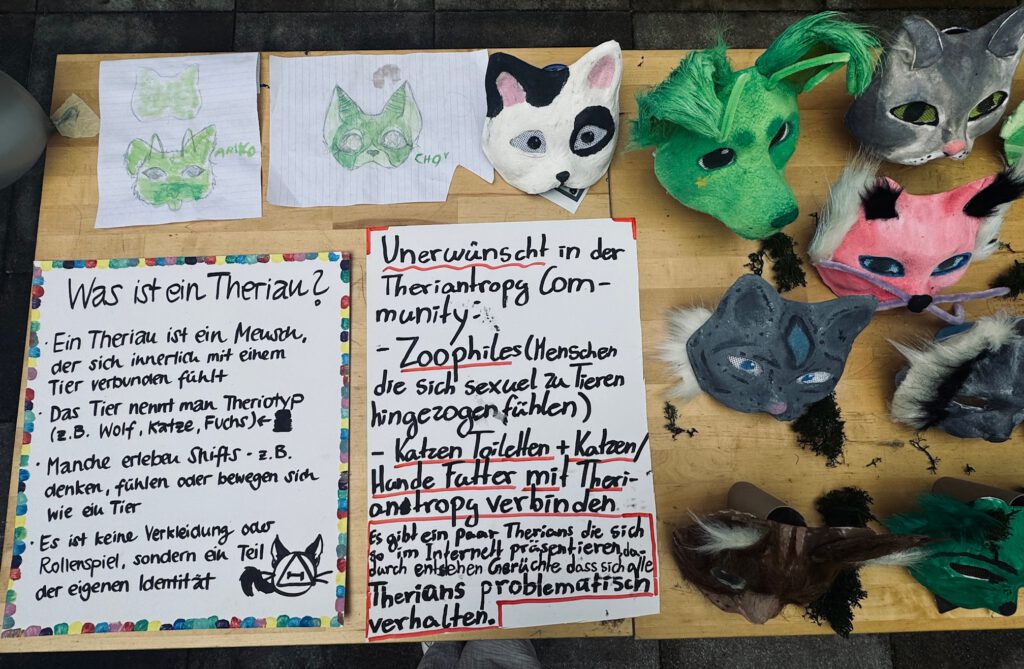 ARIKO
CHOY
Was ist ein Therian?
· Ein Therian ist ein Mensch,
der sich innerlich mit einem
Tier verbunden fühlt
· Das Tier nennt man Theriotyp
(z.B. Wolf, Katze, Fuchs)←
· Manche erleben Shifts - z.B.
denken, fühlen oder bewegen sich
wie ein Tier
· Es ist keine Verkleidung oder
Rollenspiel, sondern ein Teil
der eigenen Identität
Unerwünscht in der
Theriantropy Com-
munity:
- Zoophiles (Menschen
die sich sexuel zu Tieren
hingezogen fühlen)
- Katzen Toiletten + Katzen/
Hunde Futter mit Theri-
anstropy verbinden
Es gibt ein paar Therians die sich
so im Internett präsentieren, da
durch entstehen Gerüchte dass sich alle
Therians problematisch
verhalten.